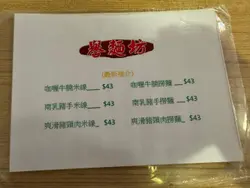 麵坊
(最新推介)
咖喱牛腩米線___ $43 咖喱牛腩撈麵 __ $43
南乳豬手米線__ $43 南乳豬手撈麵__ $43
爽滑豬頸肉米線_ $43 爽滑豬頸肉撈麵_ $43